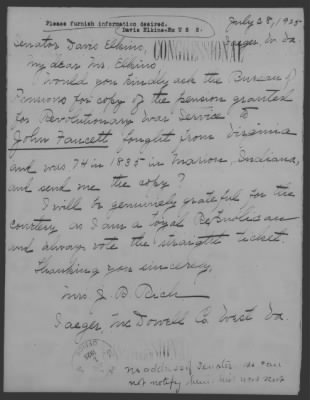 Please furnish information desired.
Davis Elkins-Ex U S S.
July 28, 1925
Iaeger, W. Va.
Senator Davis Elkins,
CONGRESSIONAL
My dear Mr. Elkins,
Would you kindly ask the Bureau of
Pensions for copy of the pension granted
for Revolutionary War Service to
John Fancett fought from Virginia
and was 74 in 1835 in Marion, Indiana,
and send me the copy?
I will be genuinely grateful for the
courtesy as I am a loyal Republican
and always vote the straight ticket.
Thanking you sincerely,
Mrs. J. B. Rich
Iaeger, McDowell Co West Va.
no address of Senator so can
not notify him